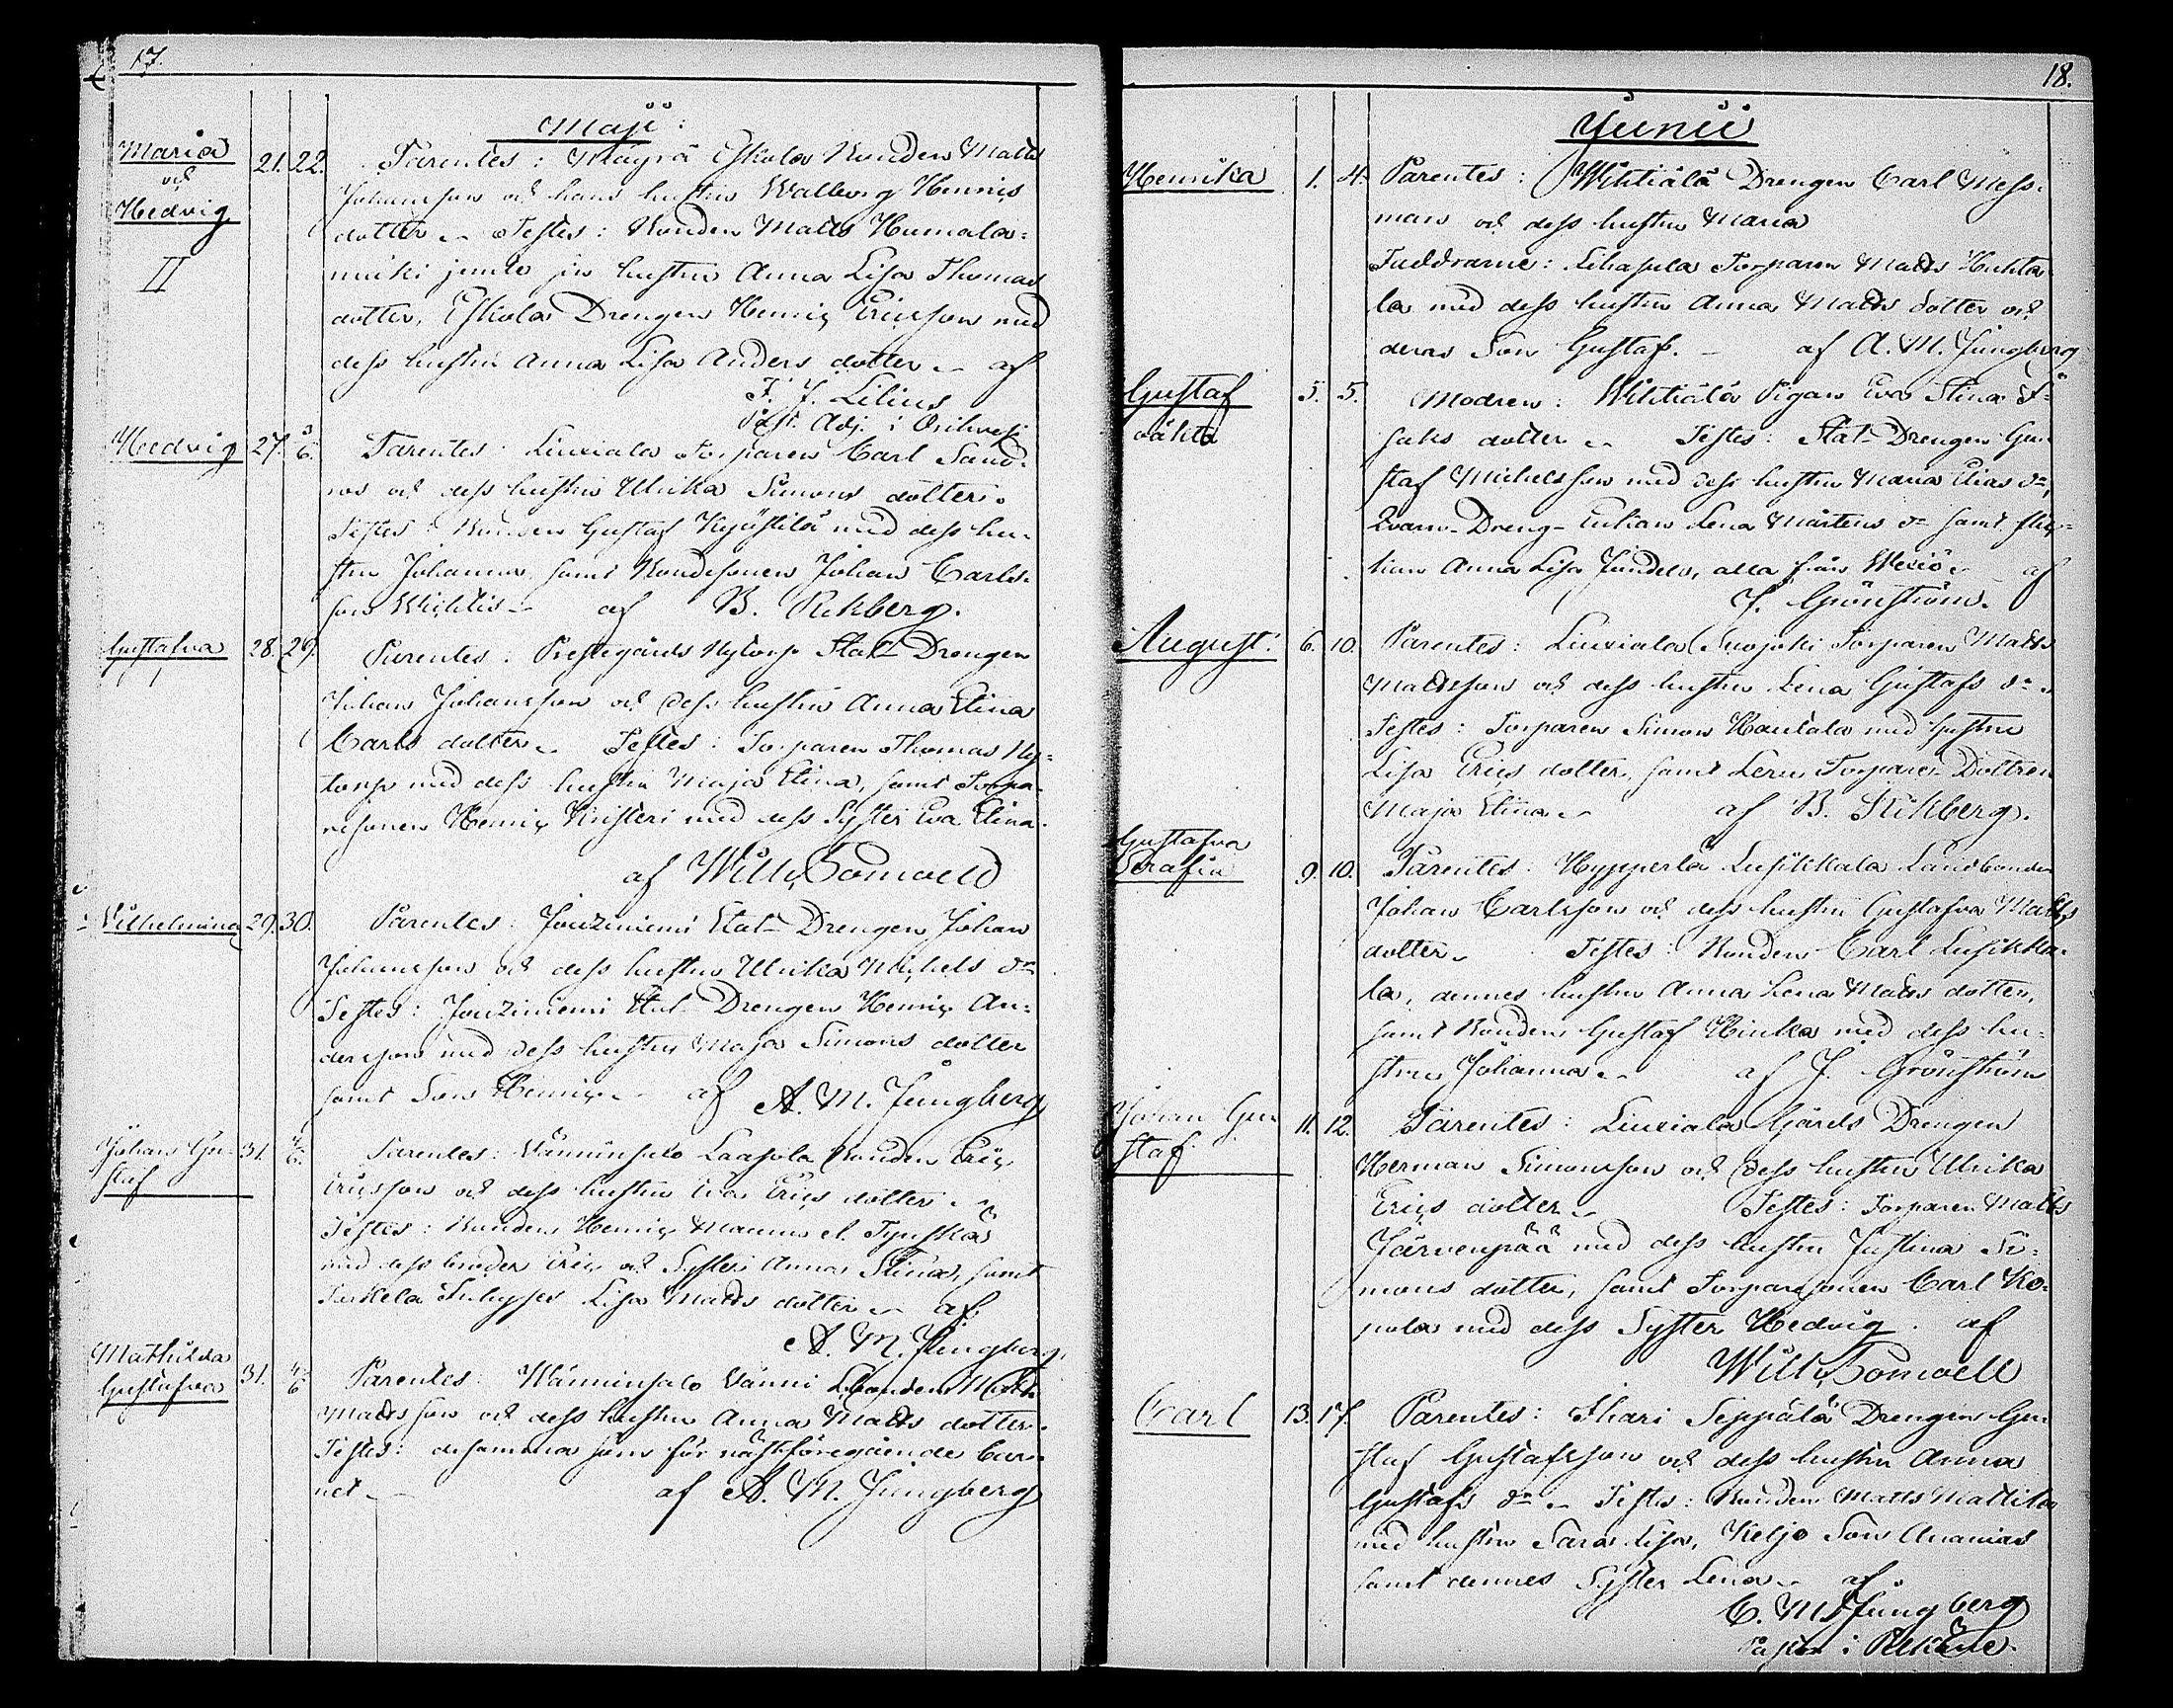 17.
Maji:
Maria
och
Hedvig
II
21. 22.
Parentes: Mäyrä Eskola Bonden Matts
Johansson och hans hustru Walborg Henrics
dotter. Testes: Bonden Matts Humala-
mäki jemte sin hustru Anna Lisa Thomas
dotter, Eskola Drengen Henric Ericsson med
dess hustru Anna Lisa Anders dotter af
F. J. Lilius
Past. Adj. i Orihvesi
Hedvig 27. 3/6.
Parentes: Liuxiala Torparen Carl Sand-
ros och dess hustru Ulrika Simons dotter.
Testes: Bonden Gustaf Kyöstilä med dess hu-
stru Johanna, samt Bondesonen Johan Carls-
son Wichtis af B. Rikberg.
Gustafva 28. 29.
Parentes: Prestegårds Nytorp Stat-Drengen
Johan Johansson och dess hustru Anna Stina
Carls dotter. Testes: Torparen Thomas Ny-
torp med dess hustru Maja Stina, samt Torpa-
resonen Henric Knisteri med dess Syster Eva Stina.
af Wilh. Bonwell
Vilhelmina 29. 30.
Parentes: Jouziniemi Stat-Drengen Johan
Johansson och dess hustru Ulrika Michels dr
Testes: Jouziniemi Stat-Drengen Henric An-
dersson med dess hustru Maja Simons dotter
samt Son Henric. af A. M. Jungberg
Johan Gu-
staf
31. 4/6.
Parentes: Vänninsalo Laapola Bonden Eric
Ericsson och dess hustru Eva Erics dotter
Testes: Bonden Henric Mannus
med dess broder Eric och Syster Anna Stina, samt
Lisa Matts dotter af
A. M. Jungberg.
Mathilda
Gustafva
31. 4/6
Parentes: Wänninsalo Vänni Lbonden Matts
Mattsson och dess hustru Anna Matts dotter.
Testes: desamma som för nästföregående bar-
net af A. M. Jungberg
18.
Junii
Henrika 1. 4.
Parentes: Wihtiälä Drengen Carl Mess-
man och dess hustru Maria
Faddrarne: Lihasula Torparen Matts Huhta-
la med dess hustru Anna Matts dotter och
deras Son Gustaf. af A. M. Jungberg
Gustaf
oäkta
5. 5.
Modren: Wihtiälä Pigan Eva Stina I-
saks dotter Testes: Stat-Drengen Gu-
staf Michelsson med dess hustru Maria Elias dr,
Qvarn-Dreng-Enkan Lena Mårtens dr samt flic-
kan Anna Lisa Jundelo, alla från Wexiö af
J. Grönström.
August. 6. 10.
Parentes: Liuxiala Suojoki Torparen Matts
Mattsson och dess hustru Lena Gustafs dr
Testes: Torparen Simon Hautala med hustru
Lisa Erics dotter, samt Leru Torpare-Dottren
Maja Stina af B. Rikberg.
Gustafva
Serafia
9. 10.
Parentes: Hyyperlä Lusikkala Landbonden
Johan Carlsson och dess hustru Gustafva Matts
dotter. Testes: Bonden Carl Lusikka-
la, dennes hustru Anna Lena Matts dotter,
samt Bonden Gustaf Hinka med dess hu-
stru Johanna af J. Grönström
Johan Gu-
staf
11. 12.
Parentes: Liuxiala Gårds Drengen
Herman Simonsson och dess hustru Ulrika
Erics dotter Testes: Torparen Matts
Järvenpää med dess hustru Justina Si-
mons dotter, samt Torparesonen Carl Ko-
pola med dess Syster Hedvig. af
Wilh. Bonwell
Carl 13. 17.
Parentes: Ihari Seppälä Drengen Gu-
staf Gustafsson och dess hustru Anna
Gustafs dr Testes: Bonden Matts Mattila
med hustru Sara Lisa, Keljo Son Ananias
samt dennes Syster Lena af
C. M. Jungberg
Pastor i Pelkäne.